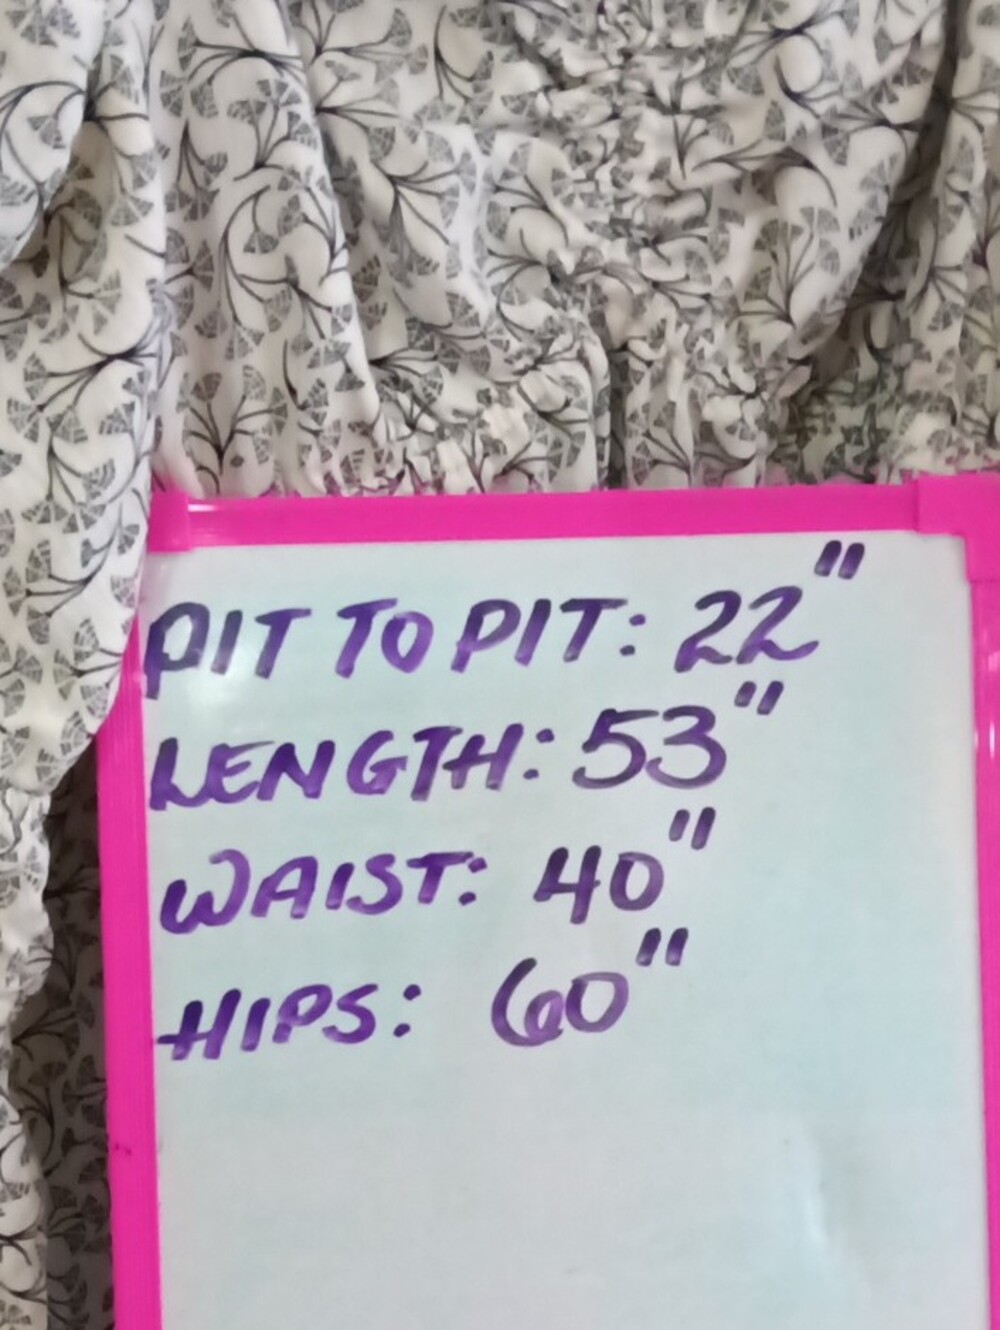 PIT TO PIT: 22"
LENGTH: 53"
WAIST: 40"
HIPS: 60"